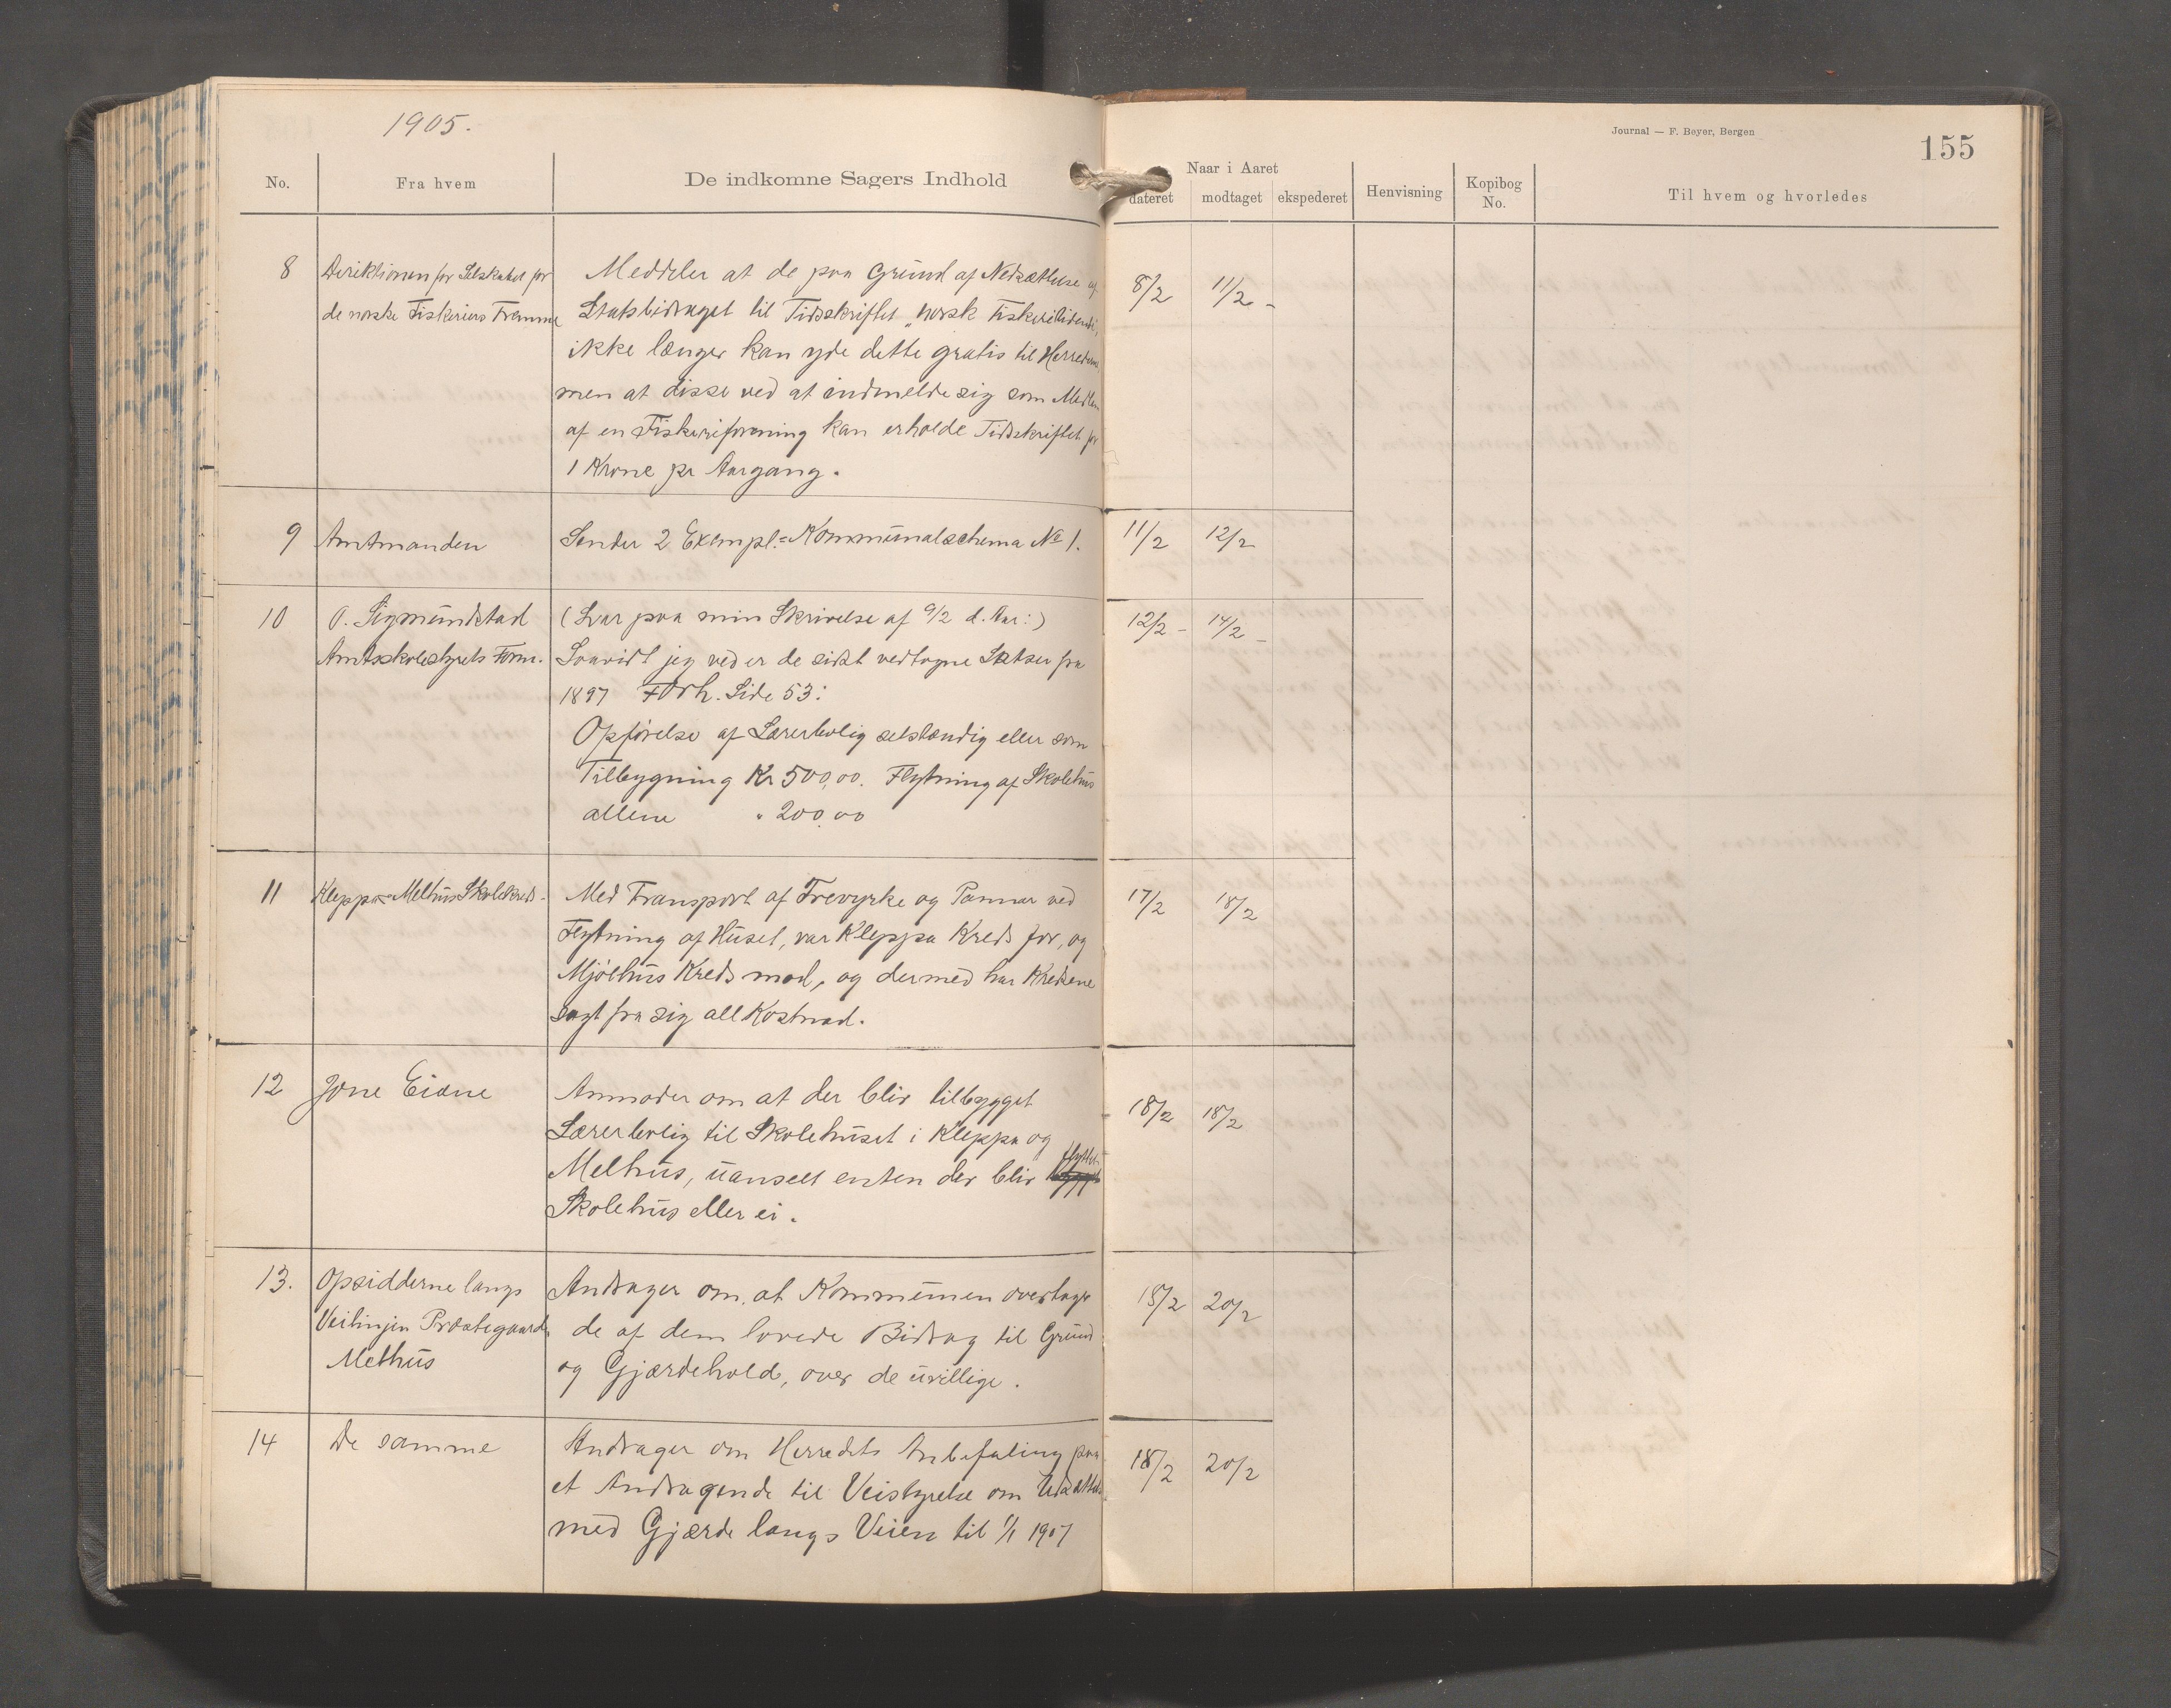 1905.
Journal — F. Beyer, Bergen
155
No.
Fra hvem
De indkomne Sagers Indhold
Naar i Aaret
dateret
modtaget
ekspederet
Henvisning
Kopibog
No.
Til hvem og hvorledes
8 Direktionen for Selskabet for Meddeler at de paa Grund af Nedsættelse af 8/2 11/2 -
de norske Fiskeriers Fremme Statsbidraget til Tidsskriftet "norsk Fiskeritidende",
ikke længer kan yde dette gratis til Herrederne
men at disse ved at indmelde sig som Medlem
af en Fiskeriforening kan erholde Tidsskriftet for
1 Krone pr Aargang.
9 Amtmanden Sender 2 Exempl. Kommunalschema No 1. 11/2 12/2
10 O. Sigmundstad (Svar paa min Skrivelse af 9/2 d. Aar:) 12/2 - 14/2 -
Amtsskolestyrets Form. Saavidt jeg ved er de sidst vedtagne Satser fra
1897 Forh. Side 53:
Opførelse af Lærerbolig selstændig eller som
Tilbygning Kr 500,00. Flytning af Skolehus
allene " 200,00
11 Kleppa-Melhus Skolekreds. Med Transport af Trevyrke og Pannar ved 17/2 18/2
Flytning af Huset, var Kleppa Kreds for, og
Mjølhus Kreds mod, og dermed har Kredsene
sagt fra sig all Kostnad.
12 Jone Eidne Anmoder om at der blir tilbygget 18/2 18/2
Lærerbolig til Skolehuset i Kleppa og
Melhus, uanseet enten der blir flyttet
Skolehus eller ei.
13. Opsidderne langs Andrager om, at Kommunen overtager 18/2 20/2
Veilinjen Præstegaard de af dem lovede Bidrag til Grund
Melhus og Gjærdehold, over de uvillige.
14 De samme Andrager om Herredets Anbefaling paa 18/2 20/2
et Andragende til Veistyrelse om Udsættelse
med Gjærde langs Veien til 1/1 1907